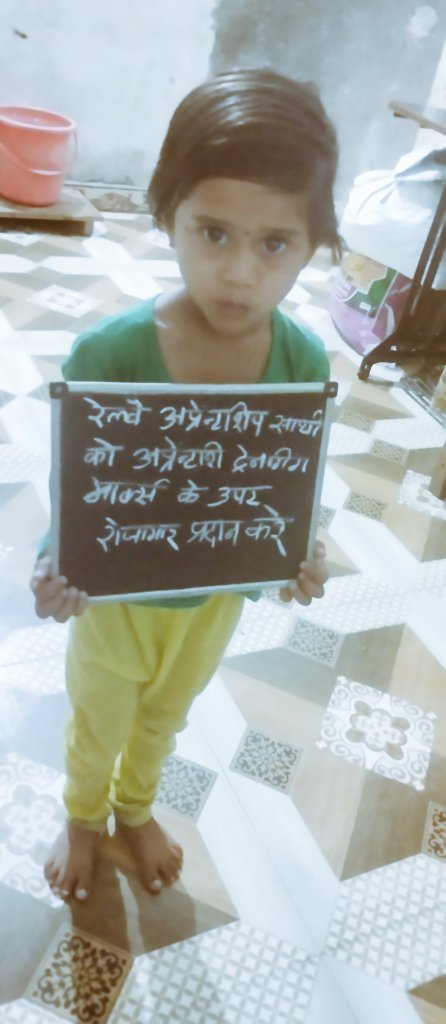 रेल्वे अप्रेन्टाशिप साथी
को अप्रेन्टारी ट्रेनींग
मार्क्स के उपर
रोजागार प्रदान करे